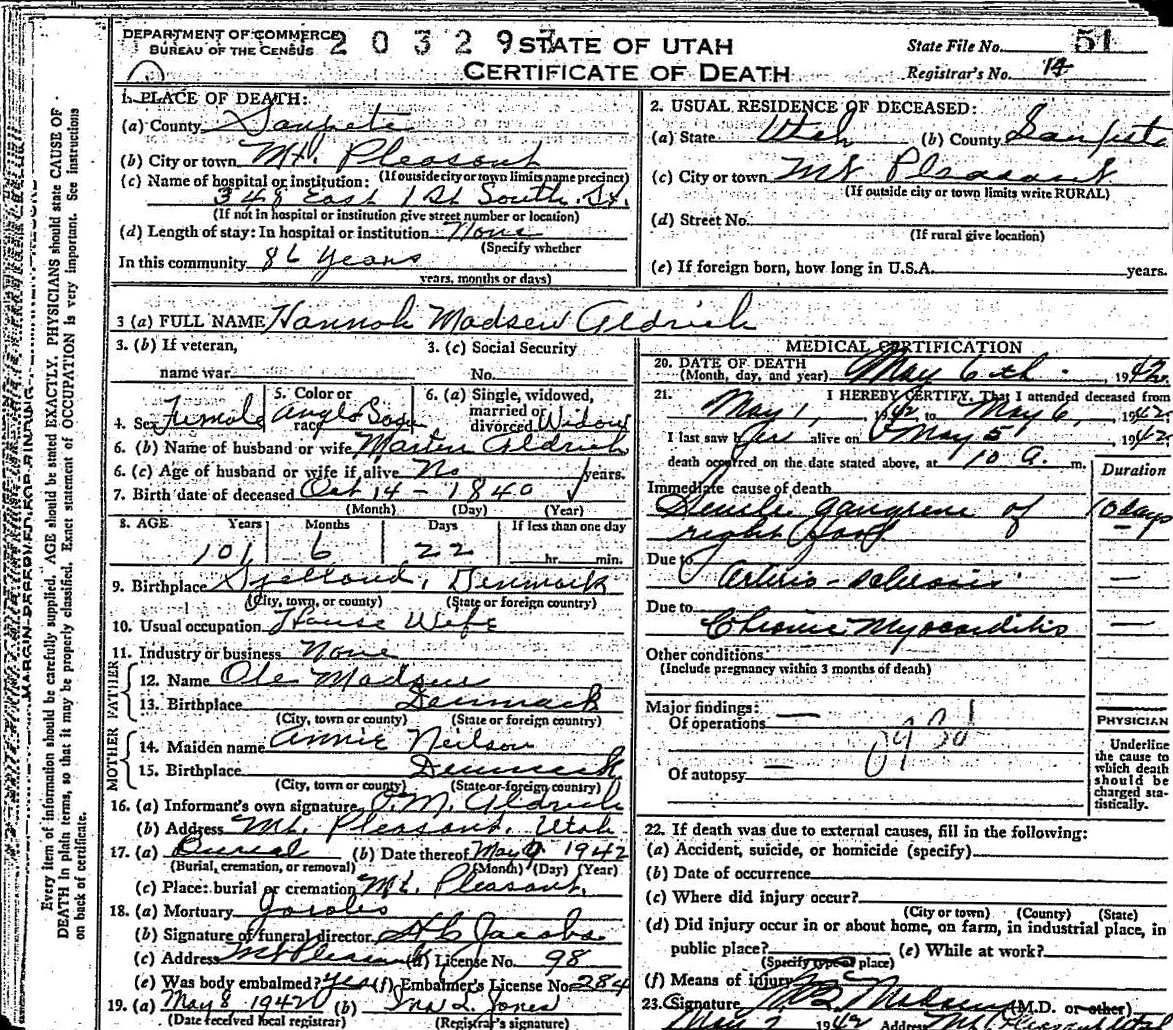 DEPARTMENT OF COMMERCE
BUREAU OF THE CENSUS
2 0 3 2 9
STATE OF UTAH
CERTIFICATE OF DEATH
State File No. 51
Registrar's No. 14
Every item of information should be carefully supplied. AGE should be stated EXACTLY. PHYSICIANS should state CAUSE OF
DEATH in plain terms, so that it may be properly classified. Exact statement of OCCUPATION is very important. See instructions
on back of certificate.
1. PLACE OF DEATH:
(a) County Sanpete
(b) City or town Mt. Pleasant
(If outside city or town limits name precinct)
(c) Name of hospital or institution:
348 East 1 St South St.
(If not in hospital or institution give street number or location)
(d) Length of stay: In hospital or institution None
(Specify whether
In this community 86 Years
years, months or days)
2. USUAL RESIDENCE OF DECEASED:
(a) State Utah (b) County Sanpete
(c) City or town Mt Pleasant
(If outside city or town limits write RURAL)
(d) Street No.
(If rural give location)
(e) If foreign born, how long in U.S.A. years.
3 (a) FULL NAME Hannah Madsen Aldrich
3. (b) If veteran,
name war
3. (c) Social Security
No.
4. Sex Female
5. Color or
race Anglo Saxon
6. (a) Single, widowed,
married or
divorced Widow
6. (b) Name of husband or wife Martin Aldrich
6. (c) Age of husband or wife if alive No years.
7. Birth date of deceased Oct 14 - 1840
(Month) (Day) (Year)
8. AGE Years Months Days If less than one day
101 6 22 hr. min.
9. Birthplace Denmark
(City, town, or county) (State or foreign country)
10. Usual occupation House Wife
11. Industry or business None
FATHER
12. Name Ole Madsen
13. Birthplace Denmark
(City, town or county) (State or foreign country)
MOTHER
14. Maiden name Annie Neilson
15. Birthplace Denmark
(City, town or county) (State or foreign country)
16. (a) Informant's own signature Aldrich
(b) Address Mt. Pleasant, Utah
17. (a) Burial (b) Date thereof May 9 1942
(Burial, cremation, or removal) (Month) (Day) (Year)
(c) Place: burial or cremation Mt. Pleasant.
18. (a) Mortuary Jacobs
(b) Signature of funeral director Jacobs
(c) Address Mt Pleasant (d) License No. 98
(e) Was body embalmed? Yes (f) Embalmer's License No. 284
19. (a) May 8 1942 (b) Ina L. Jones
(Date received local registrar) (Registrar's signature)
MEDICAL CERTIFICATION
20. DATE OF DEATH
(Month, day, and year) May 6th, 1942
21. I HEREBY CERTIFY, That I attended deceased from
May 1, 1942 to May 6, 1942
I last saw her alive on May 5, 1942
death occurred on the date stated above, at 10 a. m.
Duration
Immediate cause of death
Senile gangrene of 10 days
right foot
Due to
Arterio-sclerosis
Due to
Chronic Myocarditis
Other conditions
(Include pregnancy within 3 months of death)
Major findings:
Of operations
Of autopsy
PHYSICIAN
Underline
the cause to
which death
should be
charged sta-
tistically.
22. If death was due to external causes, fill in the following:
(a) Accident, suicide, or homicide (specify)
(b) Date of occurrence
(c) Where did injury occur?
(City or town) (County) (State)
(d) Did injury occur in or about home, on farm, in industrial place, in
public place? (e) While at work?
(Specify type of place)
(f) Means of injury
23. Signature Madsen (M.D. or other)
1942 Address